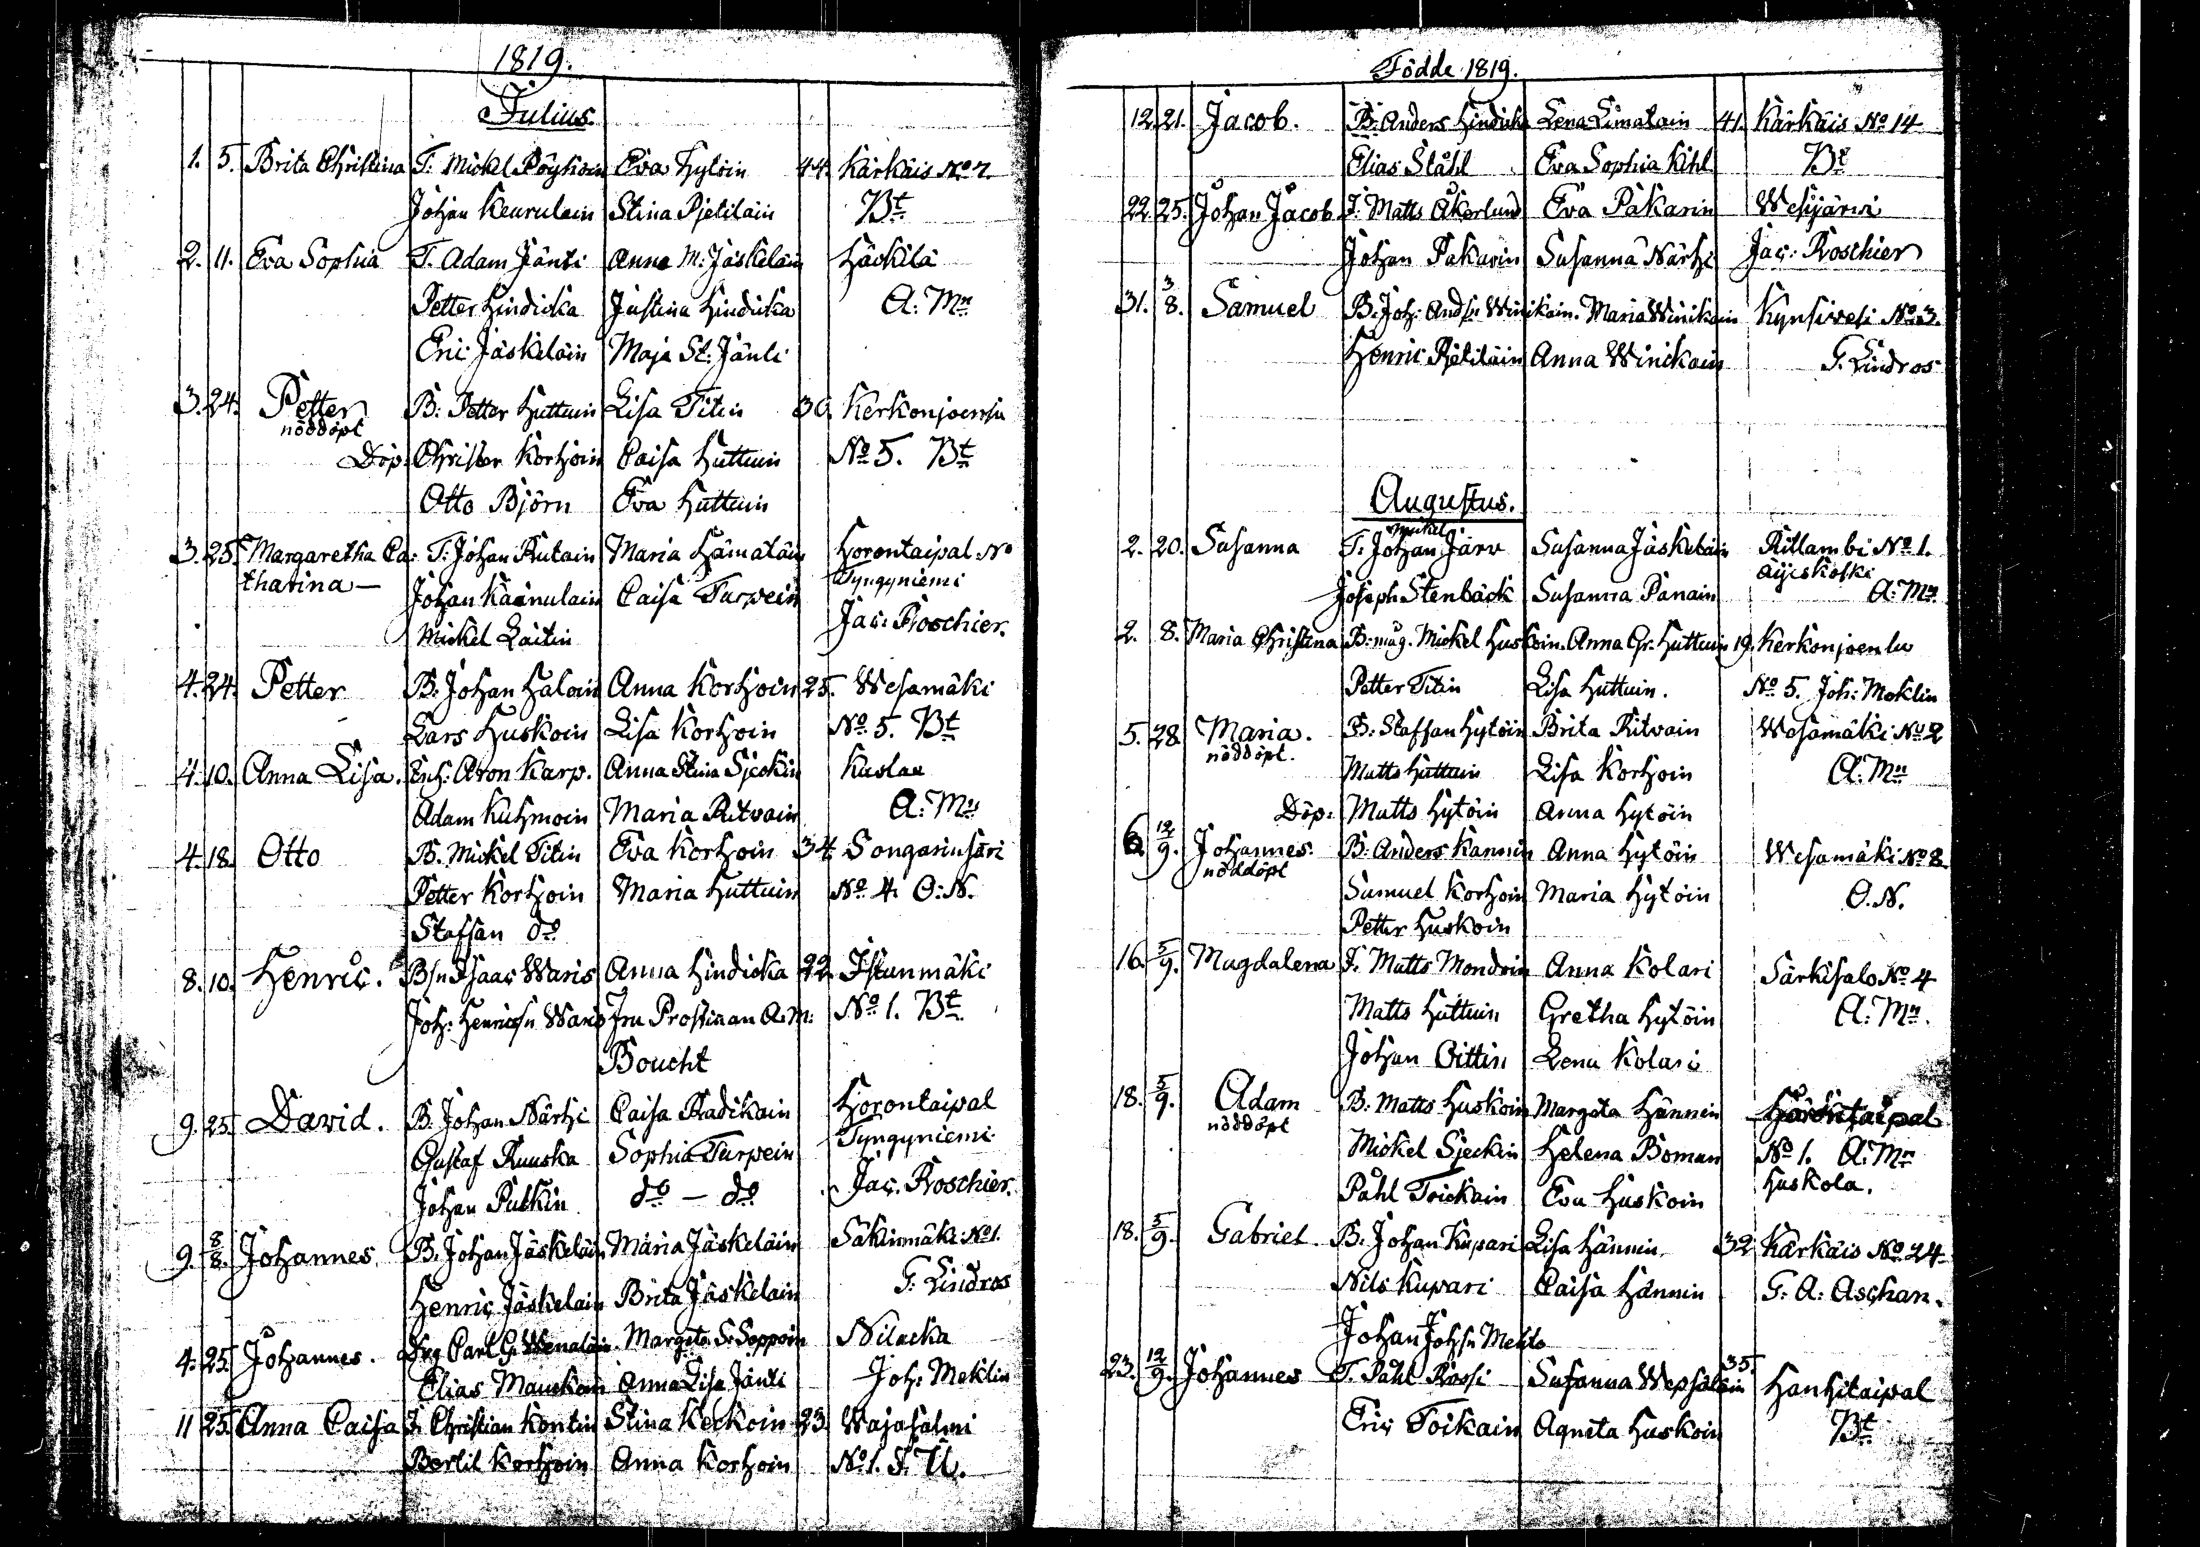 1819.
Julius.
1. 5. Brita Christina T. Mickel Pöyhöin Eva Hytöin 44. Kärkäis No 7
Johan Keurulain Stina Pjetiläin Bt
2. 11. Eva Sophia T. Adam Jänti Anna M: Jäskeläin Häckilä
Petter Hindicka Justina Hindicka A: Mn
Eric Jäskeläin Maja St: Jänti
3. 24. Petter B: Petter Huttuin Lisa Titin 30. Kerkonjoensu
nöddöpt
Döp: Christer Korhoin Caisa Huttuin No 5. Bt
Otto Björn Eva Huttuin
3. 25. Margaretha Ca: T: Johan Rutain Maria Hämäläin Horontaipal No
tharina — Johan Käinulain Caisa Turpein Tyngyniemi
Mickel Laitin Jac: Roschier.
4. 24. Petter B. Johan Haloin Anna Korhoin 25. Wesamäki
Lars Huskoin Lisa Korhoin No 5. Bt
4. 10. Anna Lisa. Enh: Aron Karp. Anna Stina Sjeckin Kuvlau
Adam Kuhmoin Maria Ritvain A: Mn
4. 18. Otto B. Mickel Titin Eva Korhoin 34. Songarinsari
Petter Korhoin Maria Huttuin No 4. O: N.
Staffan do
8. 10. Henric. Bsn Isaac Waris Anna Hindicka 22. Istunmäki
Joh: Henricsn Waris Fru Prostinnan A. M: No 1. Bt
Boucht
9. 25. David. B. Johan Närhi Caisa Radikain Horontaipal
Gustaf Ruuska Sophia Turpein Tyngyniemi
Johan Putkin do — do Jac. Roschier.
9. 8/8. Johannes B. Johan Jäskeläin Maria Jäskeläin Säkinmäki No 1.
Henric Jäskelain Brita Jäskelain G. Lindros
4. 25. Johannes. Drg Carl G. Wenaläin Margeta S: Soppoin Nilacka
Elias Mauckoin Anna Lisa Jänti Joh: Meklin
11 25. Anna Caisa I. Christian Kontin Stina Keckoin 23. Wajasalmi
Bertil Korhoin Anna Korhoin No 1. J. U.
Födde 1819.
12. 21. Jacob. B. Anders Hindicka Lena Limatain 41. Kärkäis No 14
Elias Ståhl Eva Sophia Kihl Bt
22. 25. Johan Jacob I: Matts Åkerlund Eva Pakarin Wesijärvi
Johan Pakarin Susanna Närhi Jac: Roschier
31. 3/8. Samuel B. Joh: Andsn Winikain. Maria Winikain Kynsivesi No 3.
Henric Pjetiläin Anna Winickain G. Lindros
Augustus.
Mickel
2. 20. Susanna T. Johan Järv Susanna Jäskeläin Ritlambi No 1.
Äijeskoski
Joseph Stenbäck Susanna Panain A: Mn
2. 8. Maria Christina B: måg. Mickel Huskoin. Anna Gr. Huttuin 19. Kerkonjoensu
Petter Titin Lisa Huttuin. No 5. Joh: Meklin
5. 28. Maria. B. Staffan Hytöin Brita Ritvain Wesamäki No 2
nöddöpt. Matts Huttuin Lisa Korhoin A: Mn
Döp: Matts Hytöin Anna Hytöin
6. 12/9. Johannes. B. Anders Kannin Anna Hytöin Wesamäki No 8
nöddöpt Samuel Korhoin Maria Hytöin O. N.
Petter Huskoin
16. 5/9. Magdalena I. Matts Mondoin Anna Kolari Särkisalo No 4
Matts Huttuin Gretha Hytöin A: Mn.
Johan Oittin Lena Kolari
18. 5/9. Adam B. Matts Huskoin Margeta Hännin Horontaipal
nöddöpt Mickel Sjeckin Helena Boman No 1. A: Mn
Påhl Toickain Eva Huskoin Huskola.
18. 5/9. Gabriel. B. Johan Kupari Lisa Hännin 32 Kärkäis No 24
Nils Kupari Caisa Hännin G. A: Aschan.
Johan Johsn Mehto
23. 12/9. Johannes T. Påhl Rossi Susanna Wepsäläin 35. Hanhitaipal
Eric Toikain Agneta Huskoin Bt